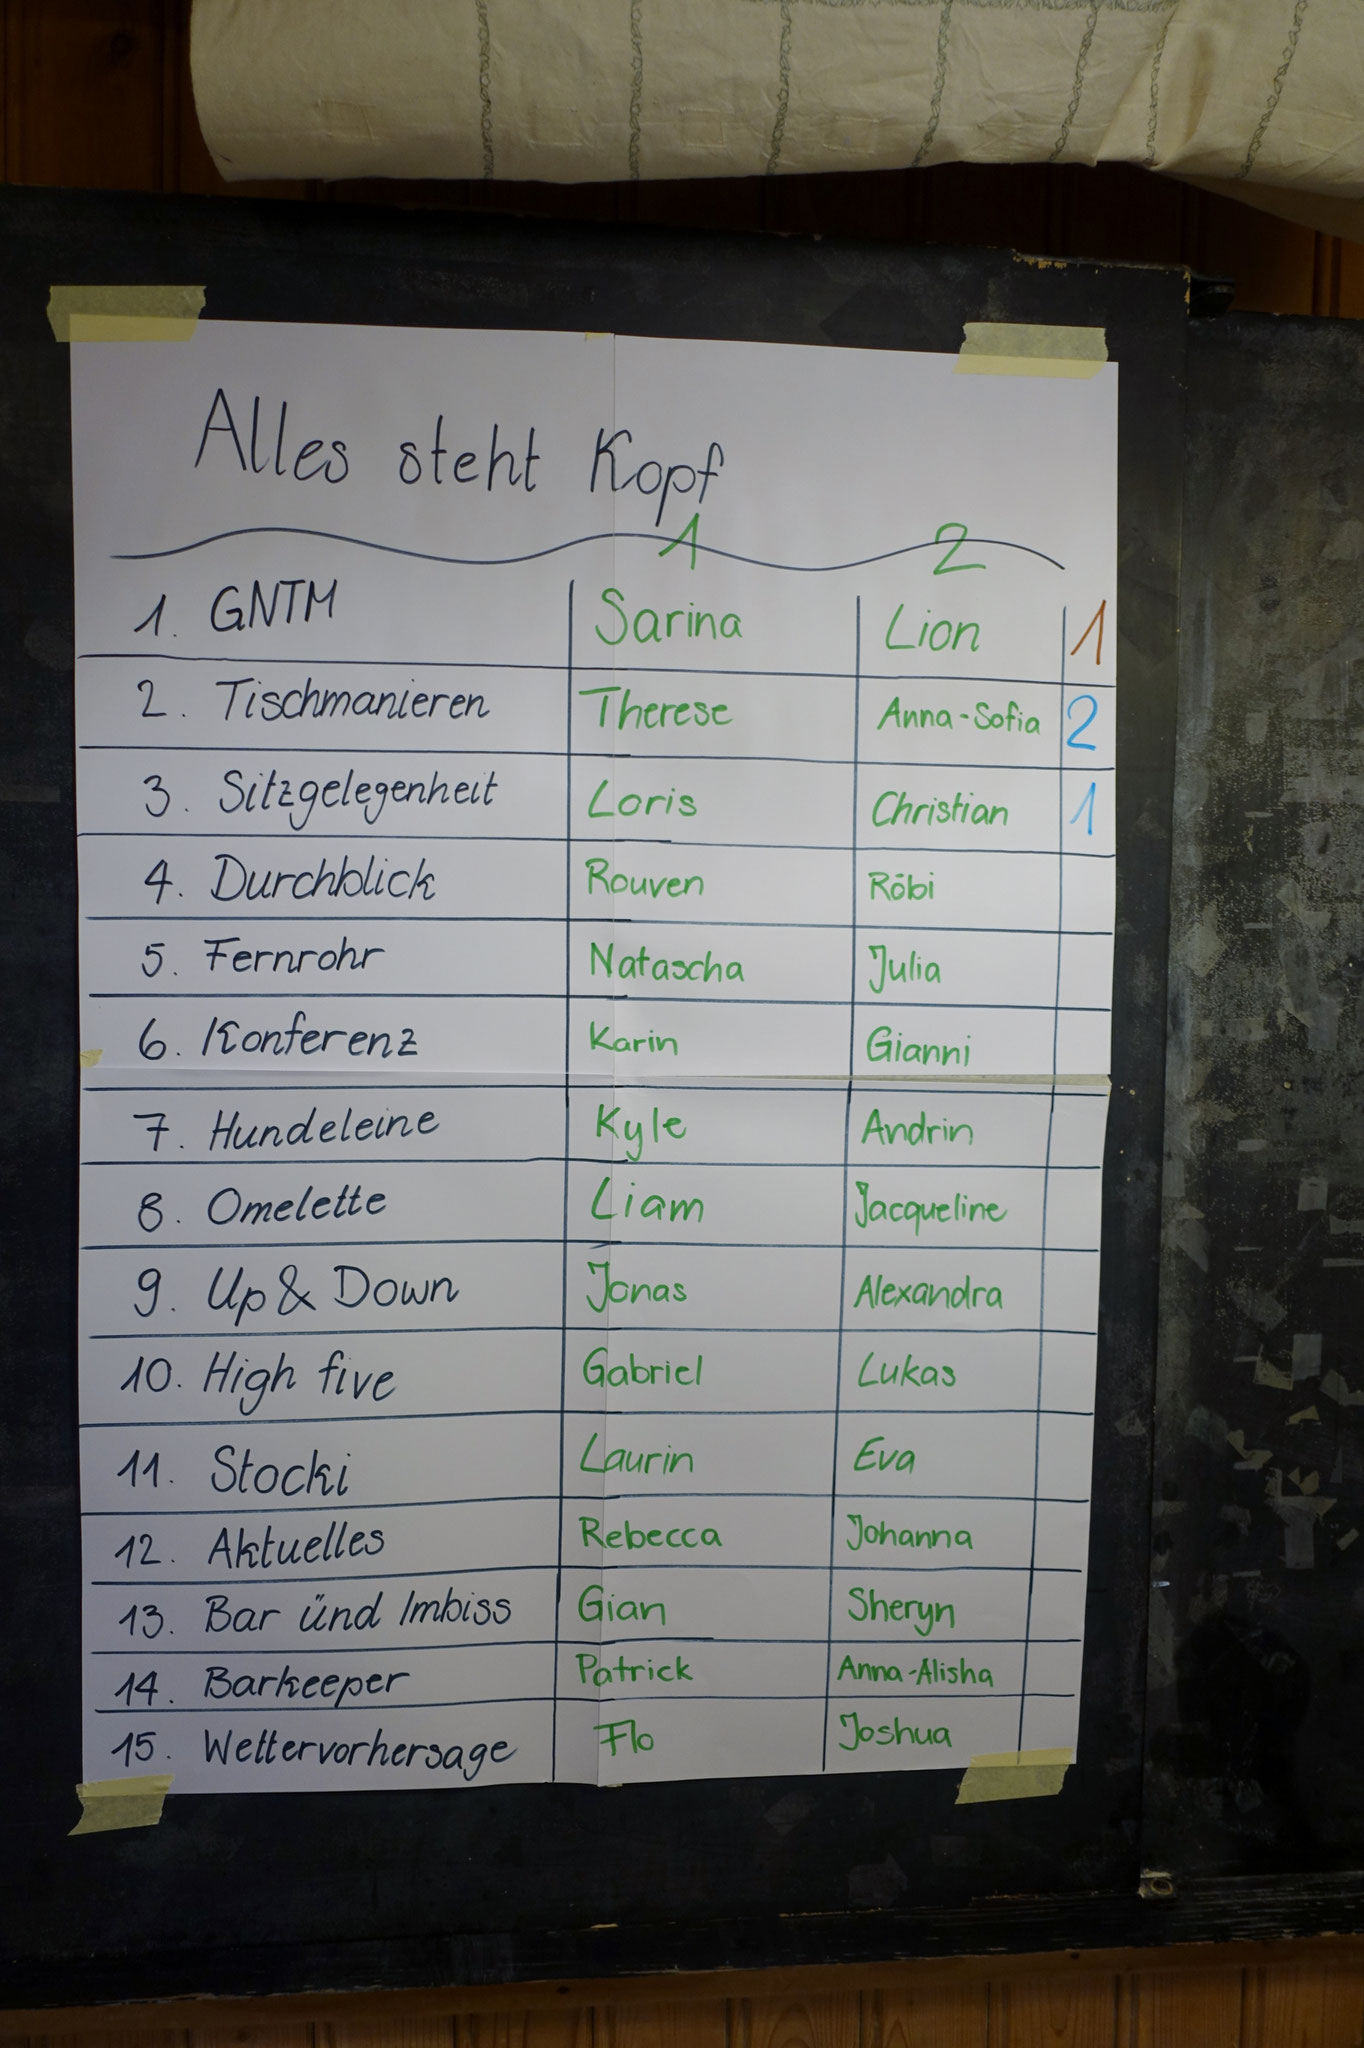 Alles steht Kopf
1 2
1. GNTM Sarina Lion 1
2. Tischmanieren Therese Anna-Sofia 2
3. Sitzgelegenheit Loris Christian 1
4. Durchblick Rouven Röbi
5. Fernrohr Natascha Julia
6. Konferenz Karin Gianni
7. Hundeleine Kyle Andrin
8. Omelette Liam Jacqueline
9. Up & Down Jonas Alexandra
10. High five Gabriel Lukas
11. Stocki Laurin Eva
12. Aktuelles Rebecca Johanna
13. Bar ünd Imbiss Gian Sheryn
14. Barkeeper Patrick Anna-Alisha
15. Wettervorhersage Flo Joshua